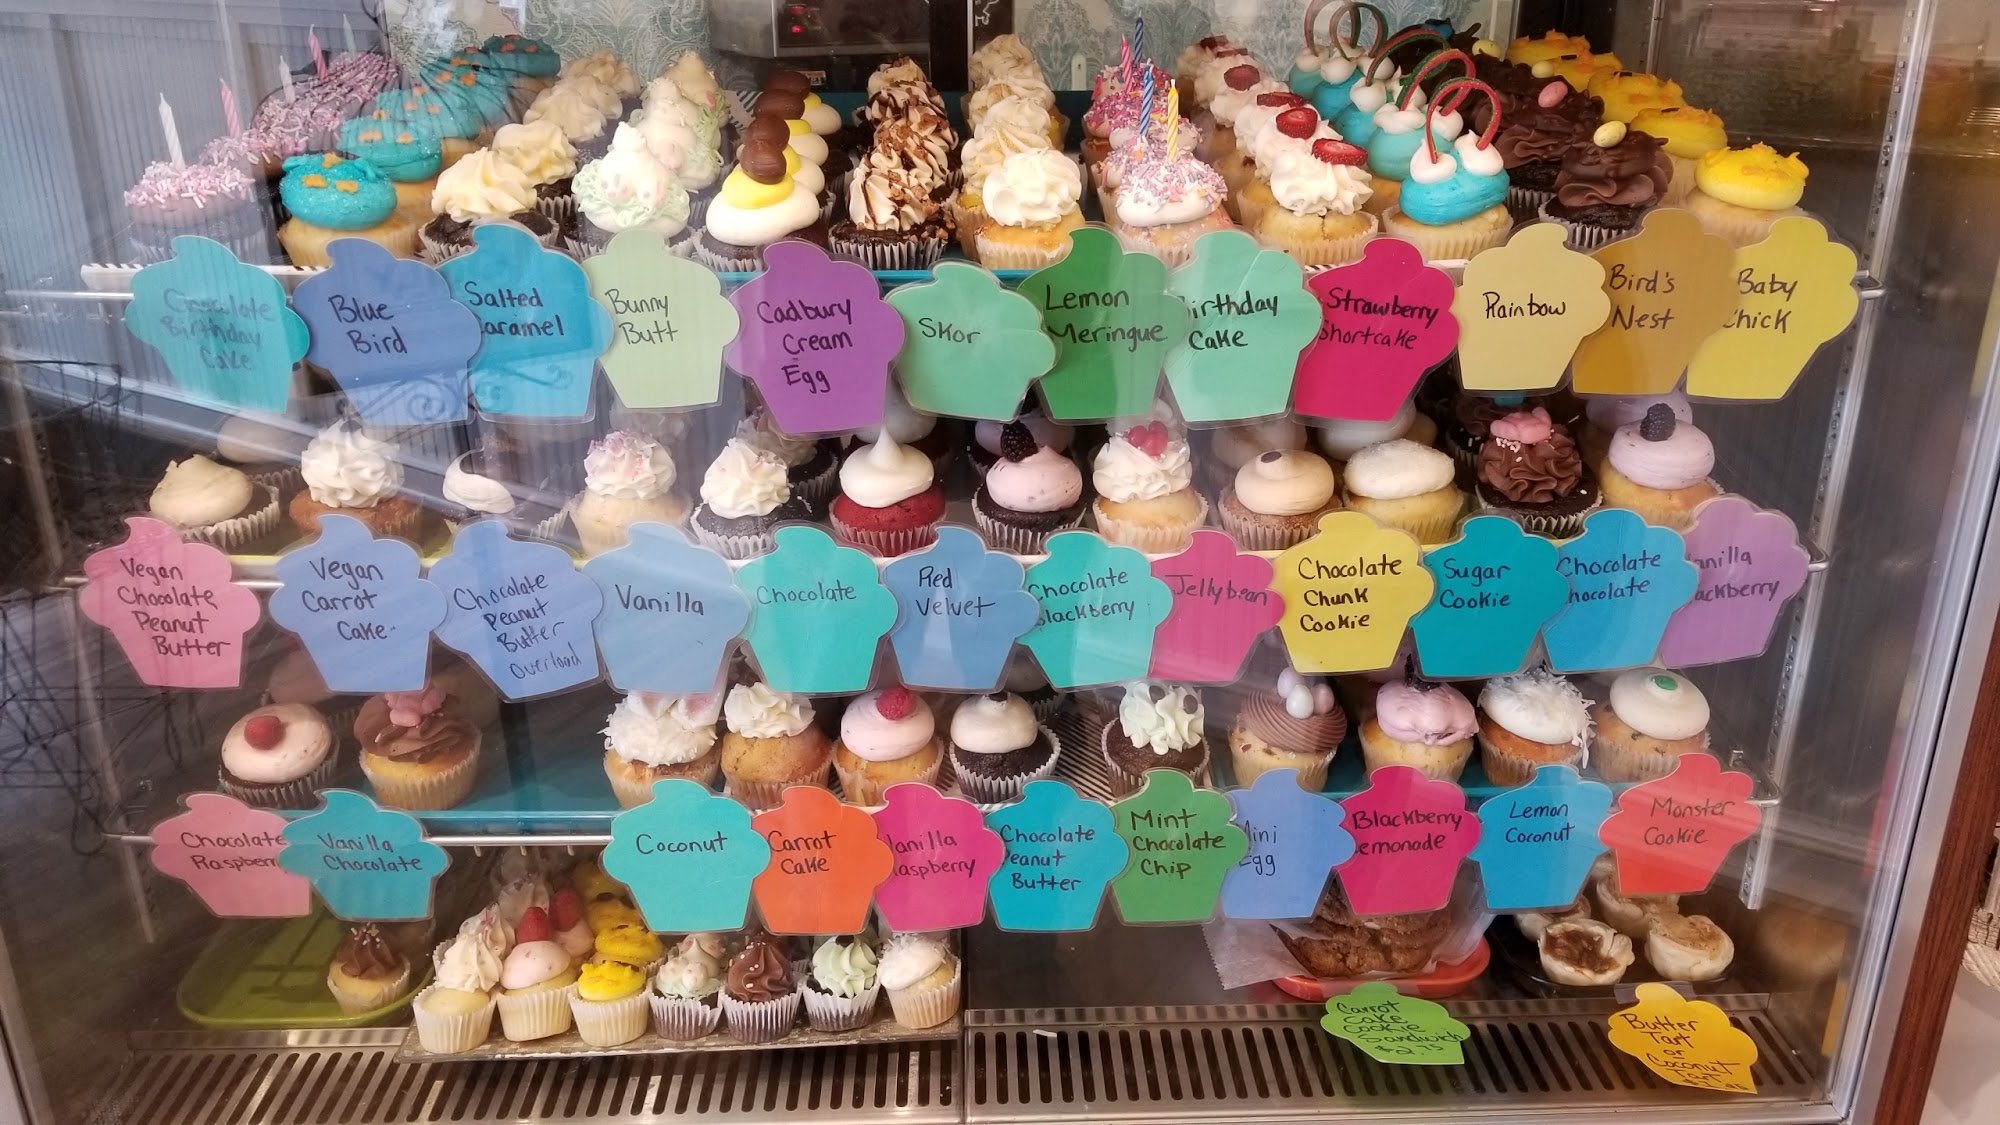 Chocolate
Birthday
Cake
Blue
Bird
Salted
Caramel
Bunny
Butt
Cadbury
Cream
Egg
Skor
Lemon
Meringue
Birthday
Cake
Strawberry
Shortcake
Rainbow
Bird's
Nest
Baby
Chick
Vegan
Chocolate
Peanut
Butter
Vegan
Carrot
Cake
Chocolate
Peanut
Butter
Overload
Vanilla
Chocolate
Red
Velvet
Chocolate
Blackberry
Jellybean
Chocolate
Chunk
Cookie
Sugar
Cookie
Chocolate
Chocolate
Vanilla
Blackberry
Chocolate
Raspberry
Vanilla
Chocolate
Coconut
Carrot
Cake
Vanilla
Raspberry
Chocolate
Peanut
Butter
Mint
Chocolate
Chip
Mini
Egg
Blackberry
Lemonade
Lemon
Coconut
Monster
Cookie
Carrot
Cake
Cookie
Sandwich
$2.75
Butter
Tart
or
Coconut
Tart